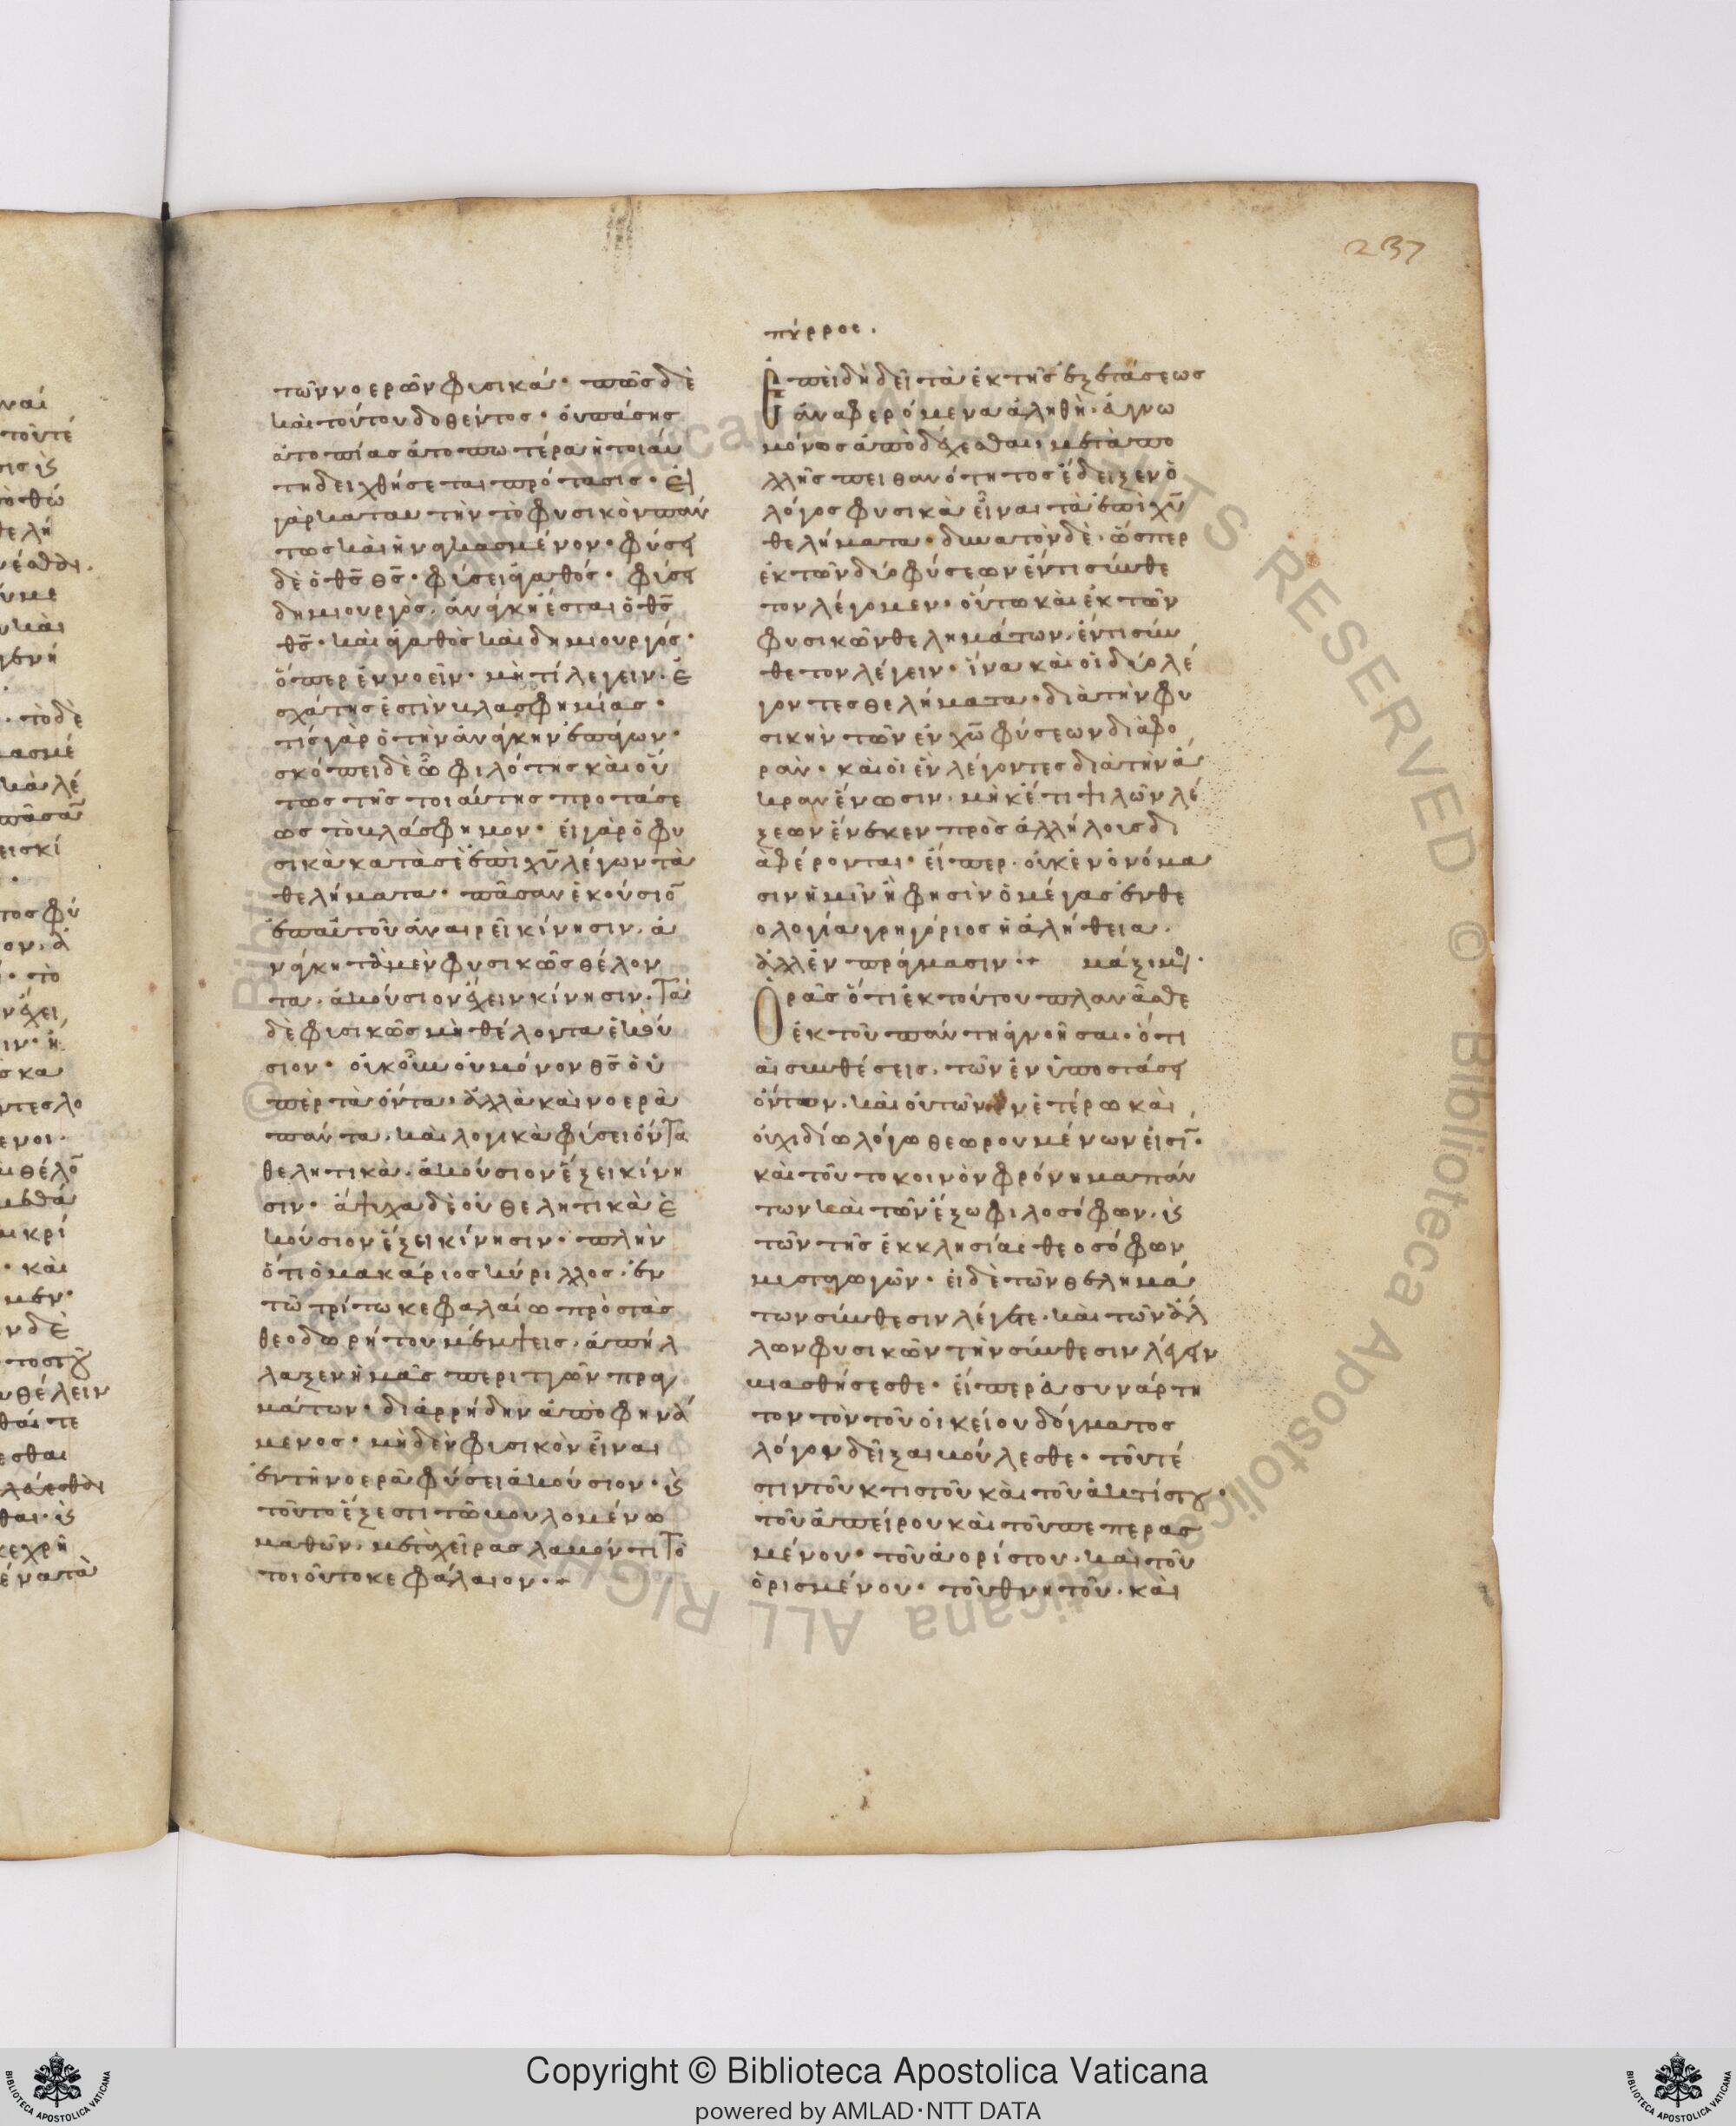 237
τῶν νοερῶν φυσικά· πῶς δὲ
καὶ τούτου δοθέντος· οὐ πάσης
ἀτοπίας ἀτοπωτέρα ἡ τοιαύ
τη δειχθήσεται πρότασις· εἰ
γὰρ κατ αυτὴν τὸ φυσικὸν πάν
τως καὶ ἠναγκασμένον· φύσει
δὲ ὁ θς̅ θς̅· φύσει ἀγαθός· φύσει
δημιουργὸς, ἀνάγκη ἔσται ὁ θς̅
θς̅· καὶ ἀγαθὸς καὶ δημιουργός·
ὅπερ ἐννοεῖν· μὴ τί λέγειν· ἐ
σχάτης ἐστὶν βλασφημίας·
τίς γὰρ ὁ τὴν ἀνάγκην ἐπάγων·
σκόπει δὲ ὦ φιλότης καὶ οὕ
τως τῆς τοιαύτης προτάσε
ως τὸ βλάσφημον· εἰ γὰρ ὁ φυ
σικὰ κατὰ σὲ ἐπὶ χυ̅ λέγων τὰ
θελήματα· πᾶσαν ἑκούσιο̅
ἐπ αυτοῦ ἀναιρεῖ κίνησιν, ἀ
νάγκη τὰ μὲν φυσικῶς θέλον
τα, ἀκούσιον ἔχειν κίνησιν. Τὰ
δὲ φυσικῶς μὴ θέλοντα ἑκού
σιον· οὐκοῦν οὐ μόνον θς̅ ὁ ὑ
πὲρ τὰ ὄντα, ἀλλὰ καὶ νοερὰ
πάντα, καὶ λογικὰ φύσει ὄντα
θελητικὰ, ἀκούσιον ἕξει κίνη
σιν· ἄψυχα δὲ οὐ θελητικὰ ἑ
κούσιον ἕξει κίνησιν· πλὴν
ὅτι ὁ μακάριος κύριλλος, ἐν
τῶ τρίτω κεφαλαίω πρὸς τὰς
θεοδωρήτου μέμψεις, ἀπήλ
λαξεν ἡμᾶς περιττῶν πραγ
μάτων· διαρρήδην ἀποφηνά
μενος· μηδὲν φυσικὸν εἶναι
ἐν τῆ νοερᾶ φύσει ἀκούσιον· κς
τοῦτο ἔξεστι τῶ βουλομένω
μαθῶν, μετὰ χεῖρας λαβόντι Τὸ
τοιοῦτο κεφάλαιον·
πύρρος.
Ἐπειδὴ δεῖ τὰ ἐκ τῆς ἐξετάσεως
ἀναφερόμενα ἀληθῆ, ἀγνω
μόνως ἀποδέχεσθαι, μετὰ πο
λλῆς πειθανότητος ἔδειξεν ὁ
λόγος φυσικὰ εἶναι τὰ ἐπὶ χυ̅
θελήματα· δυνατὸν δὲ, ὥσπερ
ἐκ τῶν δύο φύσεων ἕν τι σύνθε
τον λέγομεν· οὕτω καὶ ἐκ τῶν
φυσικῶν θελημάτων, ἕν τι σύν
θετον λέγειν· ἵνα καὶ οἱ δύο λέ
γοντες θελήματα· διὰ τὴν φυ
σικὴν τῶν ἐν χω̅ φύσεων διαφο
ράν· καὶ οἱ ἓν λέγοντες διὰ τὴν ἄ
κραν ἕνωσιν, μηκέτι ψιλῶν λέ
ξεων ἕνεκεν πρὸς ἀλλήλους δι
αφέρονται· εἴπερ, οὐκ ἐν ὀνόμα
σιν ἡμῖν ἧ φησὶν ὁ μέγας ἐν θε
ολογία γρηγόριος ἡ ἀλήθεια,
ἀλλ ἐν πράγμασιν· μάξιμος·
Ὁρᾶς ὅτι ἐκ τούτου πλανᾶσθε
ἐκ τοῦ πάντη ἀγνοῆσαι, ὅτι
αἱ συνθέσεις, τῶν ἐν ὑποστάσει
ὄντων, καὶ οὐ τῶν ἐν ἑτέρω καὶ
οὐχ ἰδίω λόγω θεωρουμένων εἰσί̅·
καὶ τοῦτο κοινὸν φρόνημα πάν
των καὶ τῶν ἔξω φιλοσόφων, κς
τῶν τῆς ἐκκλησίας θεοσόφων
μυσταγωγῶν· εἰ δὲ τῶν θελημά
των σύνθεσιν λέγετε, καὶ τῶν ἄλ
λων φυσικῶν τὴν σύνθεσιν λέγειν
βιασθήσεσθε· εἴπερ ἀσυνάρτη
τον τὸν τοῦ οἰκείου δόγματος
λόγον δεῖξαι βούλεσθε· τοῦτέ
στιν τοῦ κτιστοῦ καὶ τοῦ ἀκτίστου·
τοῦ ἀπείρου καὶ τοῦ πεπερας
μένου· τοῦ ἀορίστου, καὶ τοῦ
ὁρισμένου· τοῦ θνητοῦ, καὶ
Copyright © Biblioteca Apostolica Vaticana
powered by AMLAD·NTT DATA